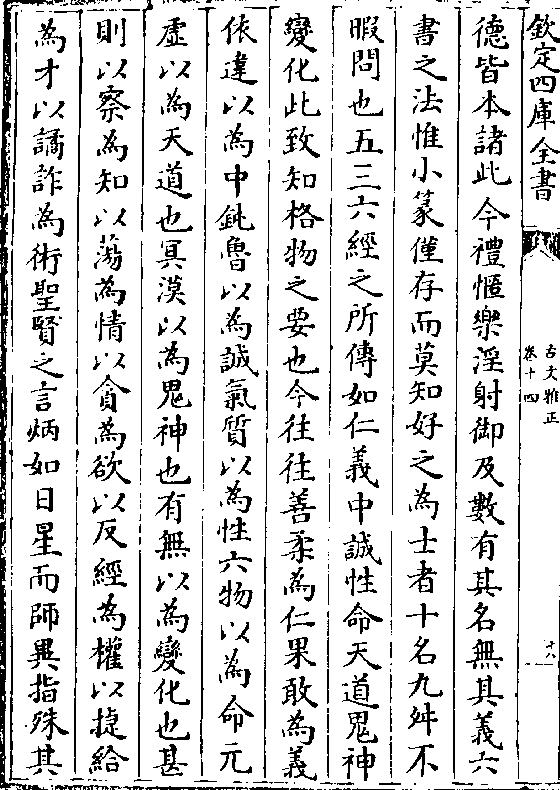 欽定四庫全書
古文雅正
卷十四
十八
德皆本諸此今禮慝樂淫射御及數有其名無其義六
書之法惟小篆僅存而莫知好之為士者十名九舛不
暇問也五三六經之所傳如仁義中誠性命天道鬼神
變化此致知格物之要也今往往善柔為仁果敢為義
依違以為中鈍魯以為誠氣質以為性六物以為命元
虛以為天道也冥漠以為鬼神也有無以為變化也甚
則以察為知以蕩為情以貪為欲以反經為權以捷給
為才以譎詐為術聖賢之言炳如日星而師異指殊其